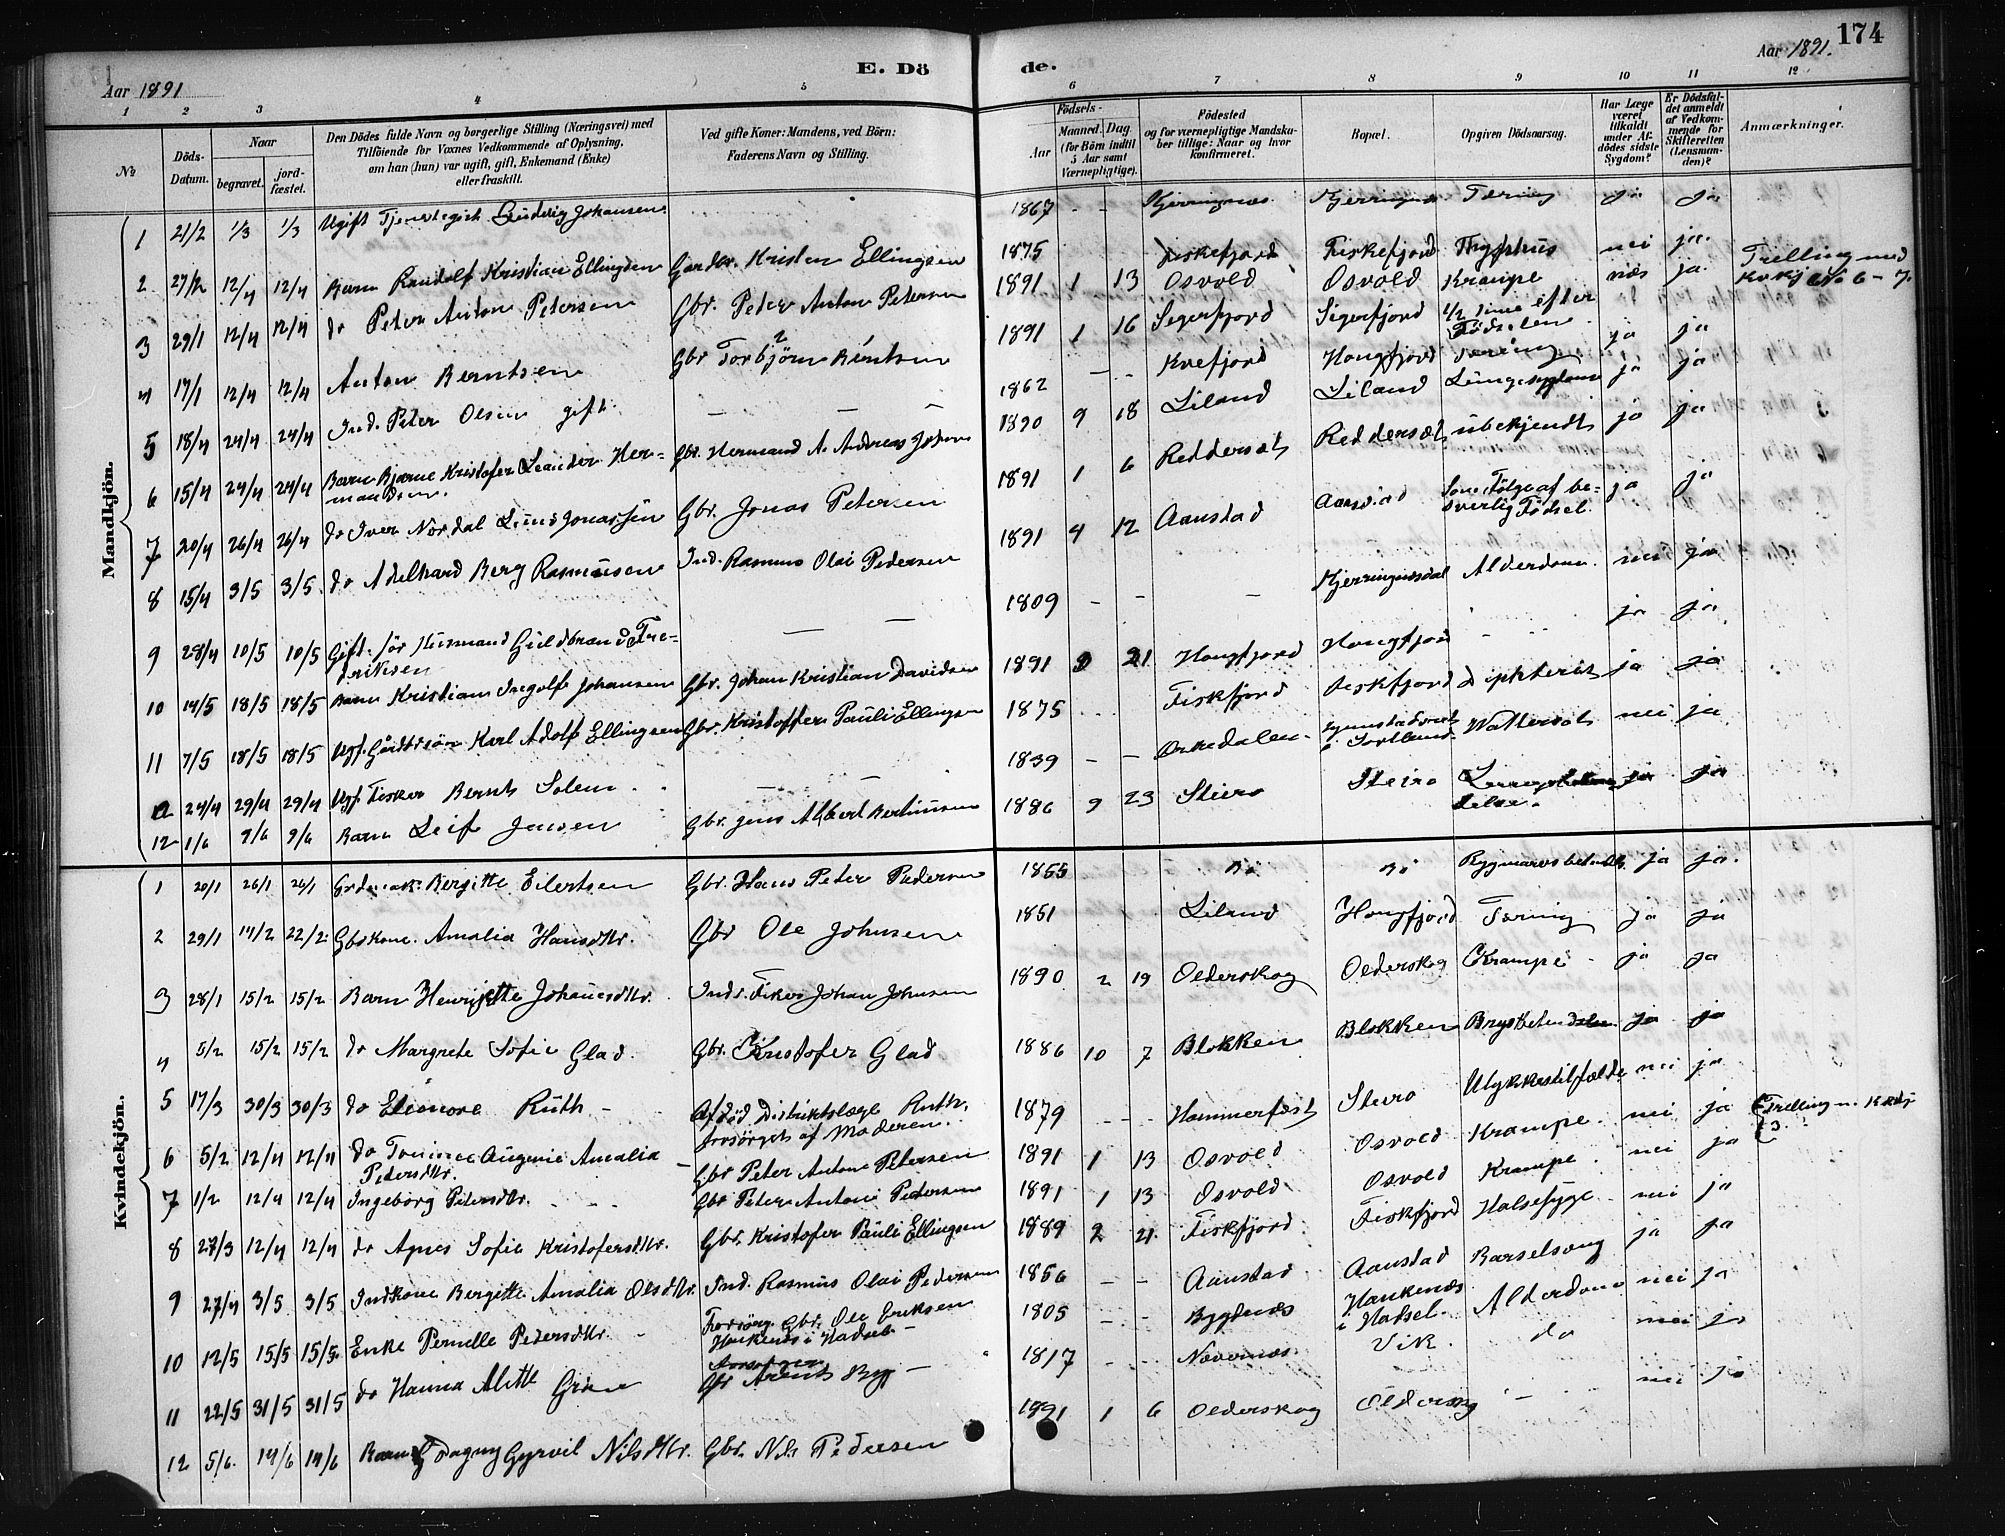 174
Aar 1891
E. Dö
de.
Aar 1891.
1 2 3 4 5 6 7 8 9 10 11 12
No
Döds-Datum.
Naar
begravet.
jord-fæstet.
Den Dödes fulde Navn og borgerlige Stilling (Næringsvei) med
Tilföiende for Voxnes Vedkommende af Oplysning,
om han (hun) var ugift, gift, Enkemand (Enke)
eller fraskilt.
Ved gifte Koner: Mandens, ved Börn:
Faderens Navn og Stilling.
Födsels-
Aar
Maaned. Dag.
(for Börn indtil
5 Aar samt
Værnepligtige).
Födested
og for værnepligtige Mandska-
ber tillige: Naar og hvor
konfirmeret.
Bopæl.
Opgiven Dödsaarsag.
Har Læge
været
tilkaldt
under Af-
dödes sidste
Sygdom?
Er Dödsfal-
det anmeldt
af Vedkom-
mende for
Skifteretten
(Lensman-
den)?
Anmærkninger.
Mandkjön.
1 21/2 1/3 1/3 Ugift Tjenstegjt Ludvig Johansen 1867 - - Kjerringnæs Kjerringnæs Tæring ja ja
2 27/12 12/4 12/4 Barn Randolf Kristian Ellingsen Gardbr. Kristen Ellingsen 1875 Fiskefjord Fiskefjord Thyfstus nei ja.
3 29/1 12/4 12/4 do Peter Anton Petersen Gbr. Peter Anton Petersen 1891 1 13 Osvold Osvold Krampe nei ja. Trelling med
Kvkj No 6-7.
4 17/1 12/4 12/4 Anton Berntsen Gbr Torbjörn Berntsen 1891 1 16 Sigerfjord Sigerfjord 1/2 Time efter
Fødselen ja ja
5 18/4 24/4 24/4 Ind. Peter Olsen gift. - - - 1862 - - Kvefjord Hongfjord Tæring ja ja
6 15/4 24/4 24/4 Barn Bjarne Kristofer Leander Her-
mandsen. Gbr. Hermand A. Andreas Johns 1890 9 18 Liland Liland Lungesygdom ja ja
7 20/4 26/4 26/4 do Iver Nordal Lund Jonassen Gbr. Jonas Petersen 1891 1 6 Reddersæt Reddersæt ubekjendt ja ja
8 15/4 3/5 3/5 do Adelhard Berg Rasmussen Ind. Rasmus Olai Pedersen 1891 4 12 Aanstad Aanstad Som Følge af be-
sverlig Fødsel. ja ja
9 28/4 10/5 10/5 Gift.för Husmand Guldbrand Fre-
driksen - - 1809 - - - Kjerringnesdal Alderdom nei ja
10 14/5 18/5 18/5 Barn Kristian Ingolf Johansen Gbr. Johan Kristian Davidsen 1891 21 Hongfjord Hongfjord - - ja ja
11 7/5 18/5 18/5 Ugf. Gårdbrsön Karl Adolf Ellingsen Gbr. Kristoffer Pauli Ellingsen 1875 Fiskfjord Fiskfjord Difhterit ja ja
a 24/4 29/4 29/4 Ugf. Fisker Bernt Solem - 1839 - - Orkedalen i Sortland Wattersot nei ja
12 1/6 9/6 9/6 Barn Leif Jensen Gbr. Jens Albert Bertinusen 1886 9 23 Steiro Steiro ja ja
Kvindekjön.
1 20/1 26/1 26/1 Bergitte Eilertsen Gbr. Hans Peter Pedersen 1855 Bö Bö Rygmarvsbetndt. ja ja.
2 29/1 14/2 22/2 Gbrkone. Amalia Hansdtr. Gbr Ole Johnsen 1851 Liland Hongfjord Tæring ja ja
3 28/1 15/2 15/2 Barn Henrijette Johansdtr. Inds. Fisker Johan Johnsen 1890 2 19 Olderskog Olderskog Krampe - ja ja
4 5/2 15/2 15/2 do Margrete Sofie Glad. Gbr. Kristofer Glad 1886 10 7 Blokken Blokken Brystbetendelse ja ja
5 17/3 30/3 30/3 do Eleonore Ruth - Afdöd Distriktslæge Ruth,
forsörget af Moderen. 1879 - - Hammerfest Steiro Ulykkestilfælde nei ja
6 5/2 12/4 12/4 do Augenie Amalia
Petersdtr. - Gbr Peter Anton Petersen 1891 1 13 Osvold Osvold Krampe. nei ja Trelling m. Mkj
3
7 1/2 12/4 12/4 Ingeborg Petersdtr. - - Gbr Peter Anton Petersen 1891 1 13 Osvold Osvold Krampe nei ja
8 27/3 12/4 12/4 do Agnes Sofie Kristofersdtr. Gbr. Kristofer Pauli Ellingsen 1889 2 21 Fiskfjord Fiskfjord Halsesyge nei ja
9 27/4 3/5 3/5 Indkone Bergitte Amalia Olsdtr. Ind. Rasmus Olai Pedersen 1856 - - Aanstad Aanstad Barselseng ja ja
10 12/5 15/5 15/5. Enke Pernelle Pedersdtr. - Forsörg. Gbr. Ole Eriksen
Haukenes i Hadsel - 1805 - - Bygdnæs Haukenæs
i Hadsel. Alderdom nei ja
11 22/5 31/5 31/5 do Hanna Alette Grön Forsörger
Gbr Arent Byg - 1817 - - Nævernæs Vik. do nei ja
12 5/6. 14/6 14/6 Barn Dagny Gyrvil Nilsdtr. Gbr. Nils Pedersen 1891 1 6 Olderskog Olderskog - nei ja